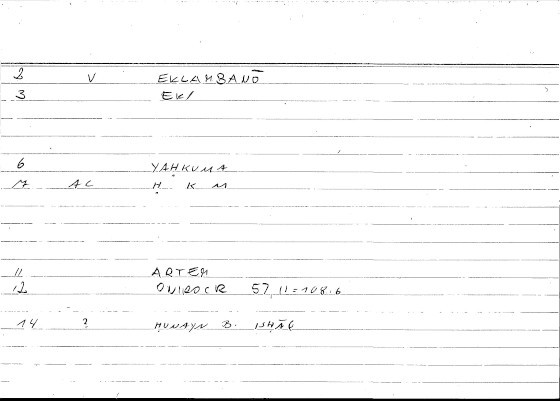 2 V EKLAMBANŌ
3 EK/
6 YAḤKUMA
M AC Ḥ K M
11 ARTEM
12 ONIROCR 57,11=108.6
14 ? ḤUNAYN B. ISḤĀQ